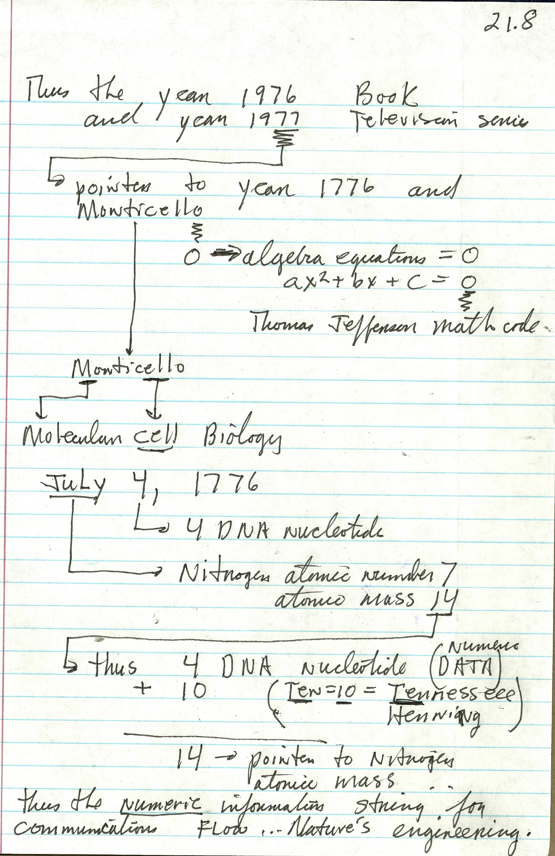 21.8
Thus the year 1976 Book
and year 1977 Television series
pointer to year 1776 and
Monticello
0 ⇒ algebra equations = 0
ax²+bx+c=0
Thomas Jefferson math code.
Monticello
Molecular cell Biology
July 4, 1776
4 DNA nucleotide
Nitrogen atomic number 7
atomic mass 14
thus 4 DNA nucleotide (Numeric DATA)
+ 10 (Ten=10=Tennesseee
Henning)
14 → pointer to Nitrogen
atomic mass ...
thus the numeric information string for
communications Flow ... Nature's engineering.